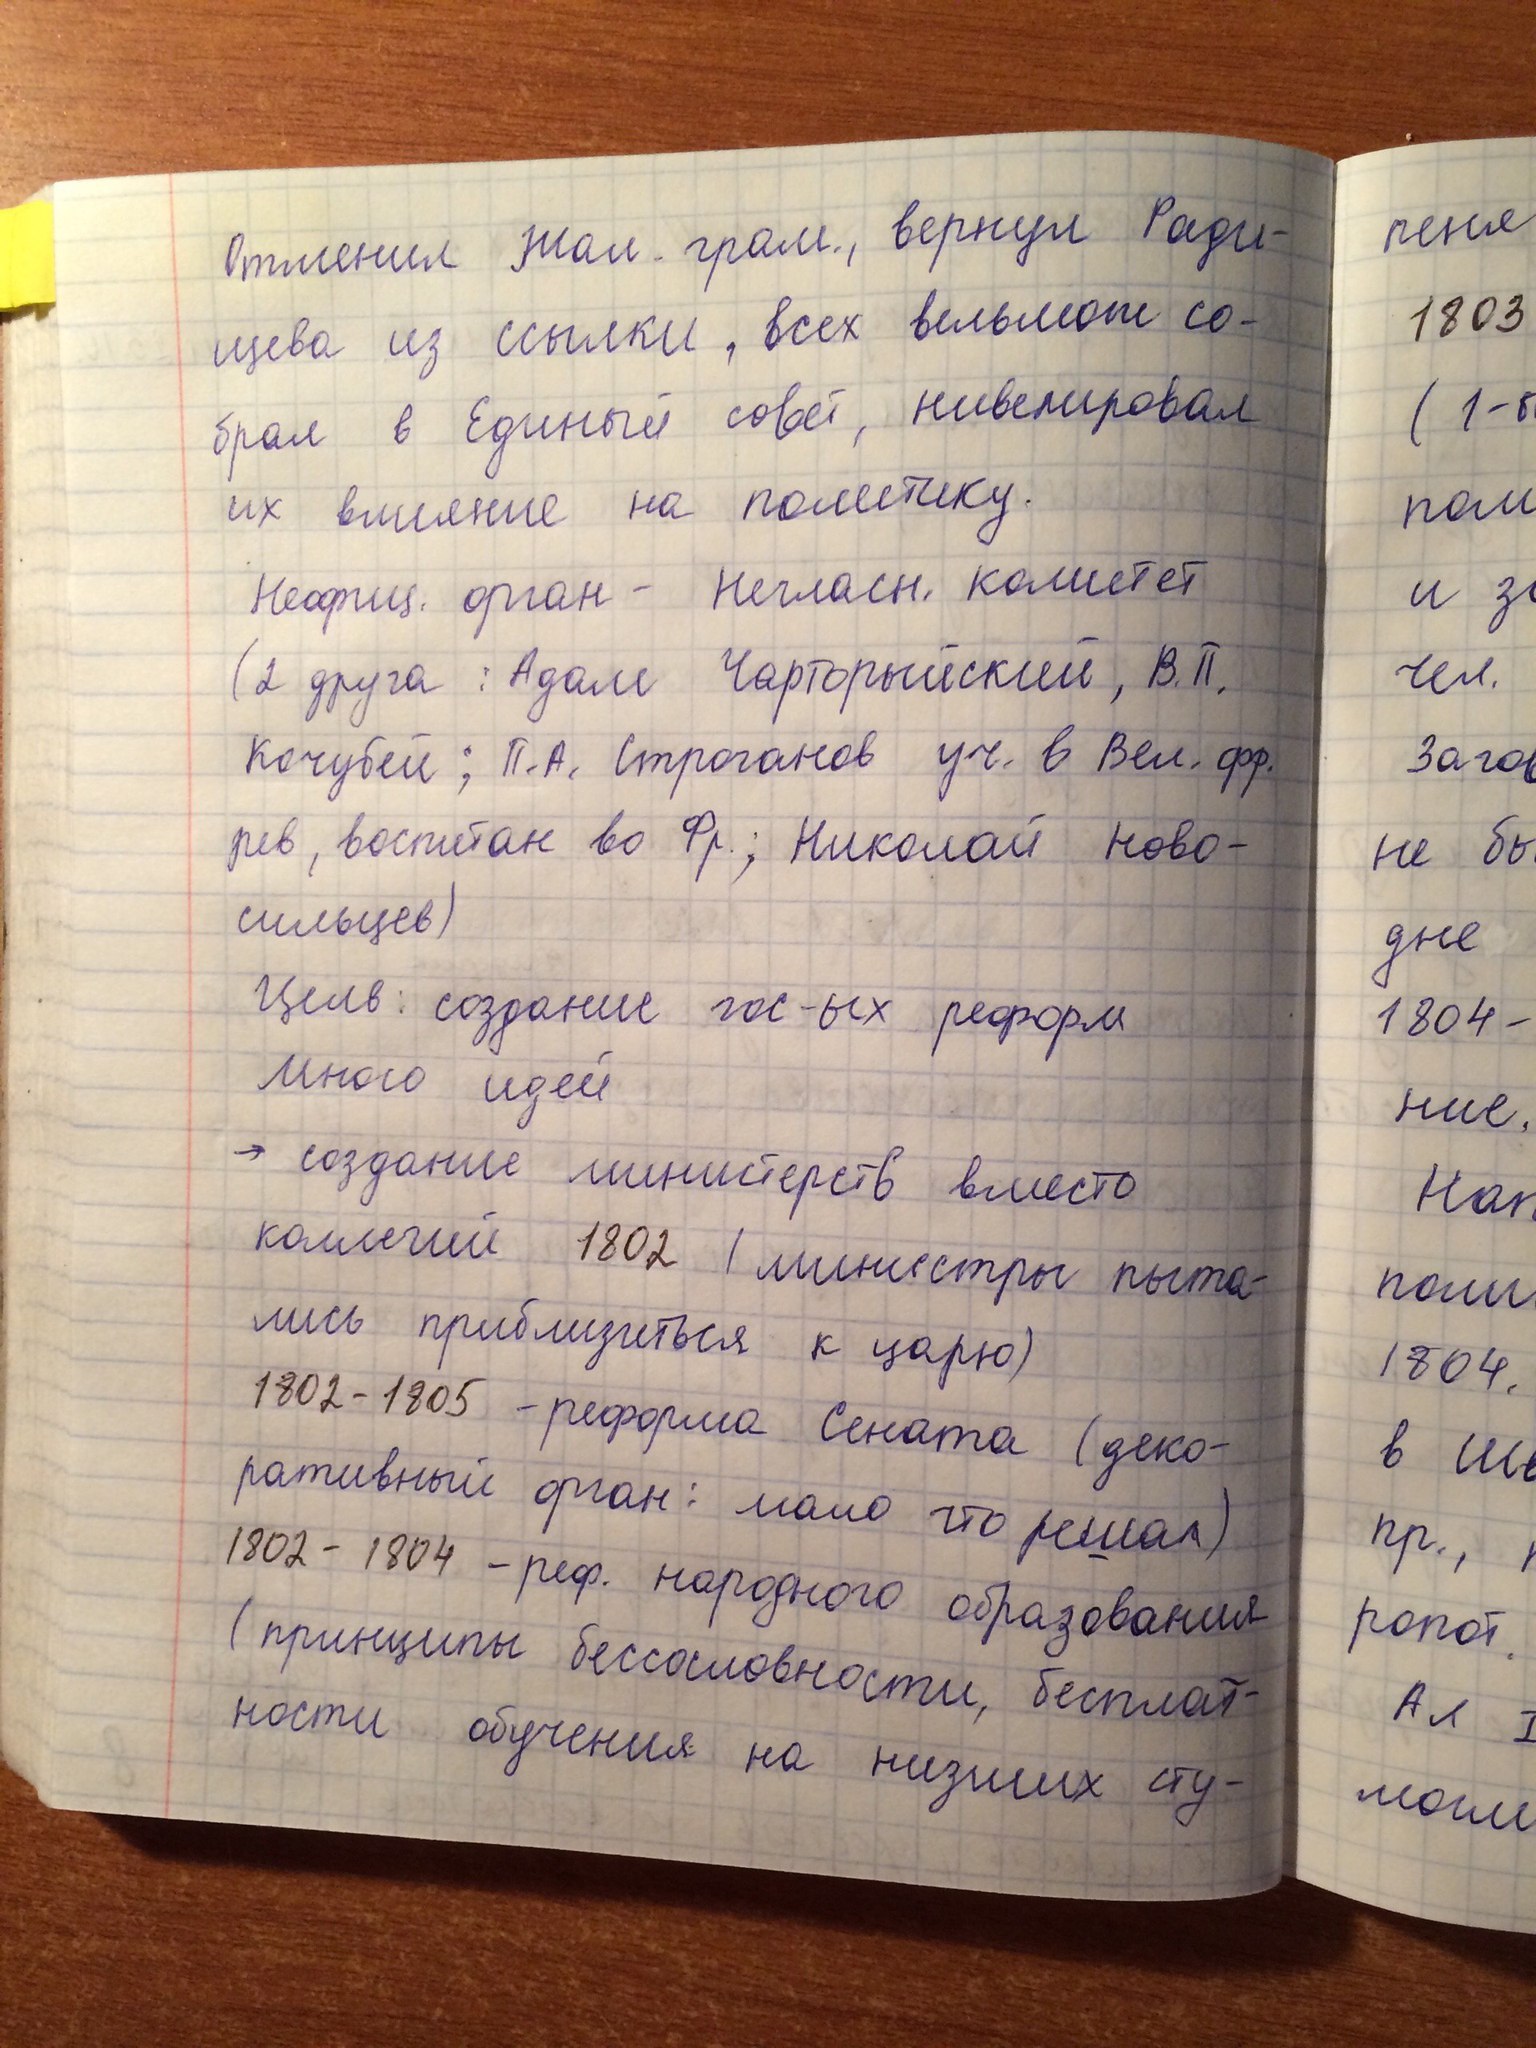 Отменил Жал. грам., вернул Ради-
щева из ссылки, всех вельмож со-
брал в Единый совет, нивелировал
их влияние на политику.
Неофиц. орган - Негласн. комитет
(2 друга : Адам Чарторыйский, В.П.
Кочубей; П.А. Строганов уч. в Вел. фр.
рев, воспитан во Фр.; Николай Ново-
сильцев)
Цель: создание гос-ых реформ
Много идей
→ создание министерств вместо
коллегий 1802 (министры пыта-
лись приблизиться к царю)
1802-1805 - реформа Сената (деко-
ративный орган: мало что решал)
1802 - 1804 - реф. народного образования
(принципы бессословности, бесплат-
ности обучения на низших сту-
пеня
1803
(1-ы
поли
и за
чел.
Загов
не бы
дне
1804-
ние.
Нап
поли
1804.
в Шв
пр.,
ропот.
Ал I
могли